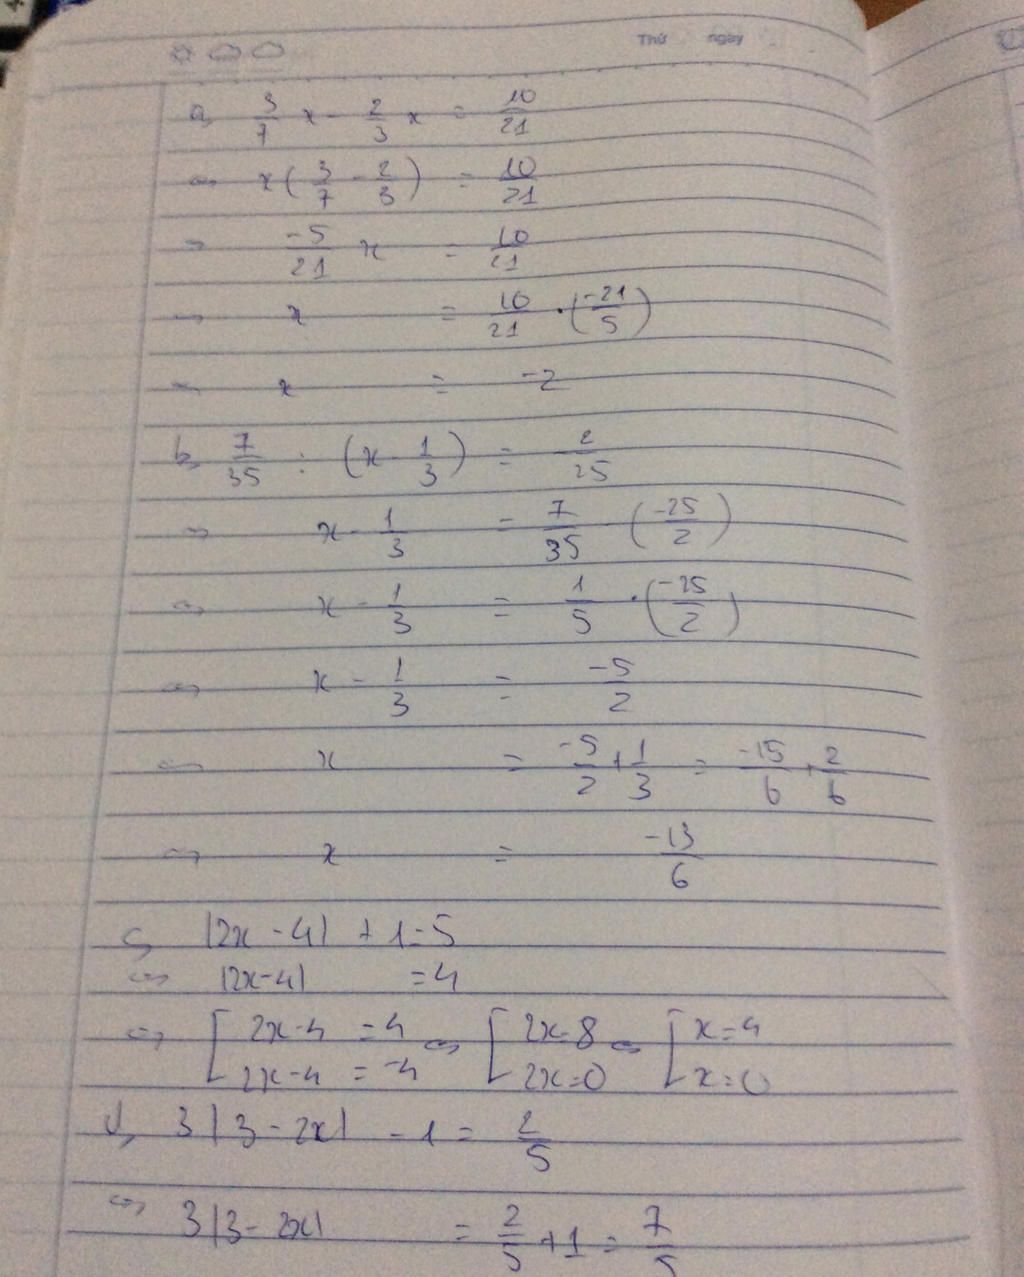 Thứ ngày
a, 3/7 x - 2/3 x = 10/21
⇔ x(3/7 - 2/3) = 10/21
⇔ -5/21 x = 10/21
⇔ x = 10/21 · (-21/5)
⇔ x = -2
b, 7/35 : (x - 1/3) = -2/25
⇔ x - 1/3 = 7/35 · (-25/2)
⇔ x - 1/3 = 1/5 · (-25/2)
⇔ x - 1/3 = -5/2
⇔ x = -5/2 + 1/3 = -15/6 + 2/6
⇔ x = -13/6
c, |2x - 4| + 1 = 5
⇔ |2x - 4| = 4
⇔ [ 2x - 4 = 4 ⇔ [ 2x = 8 ⇔ [ x = 4
2x - 4 = -4 2x = 0 x = 0
d, 3|3 - 2x| - 1 = 2/5
⇔ 3|3 - 2x| = 2/5 + 1 = 7/5